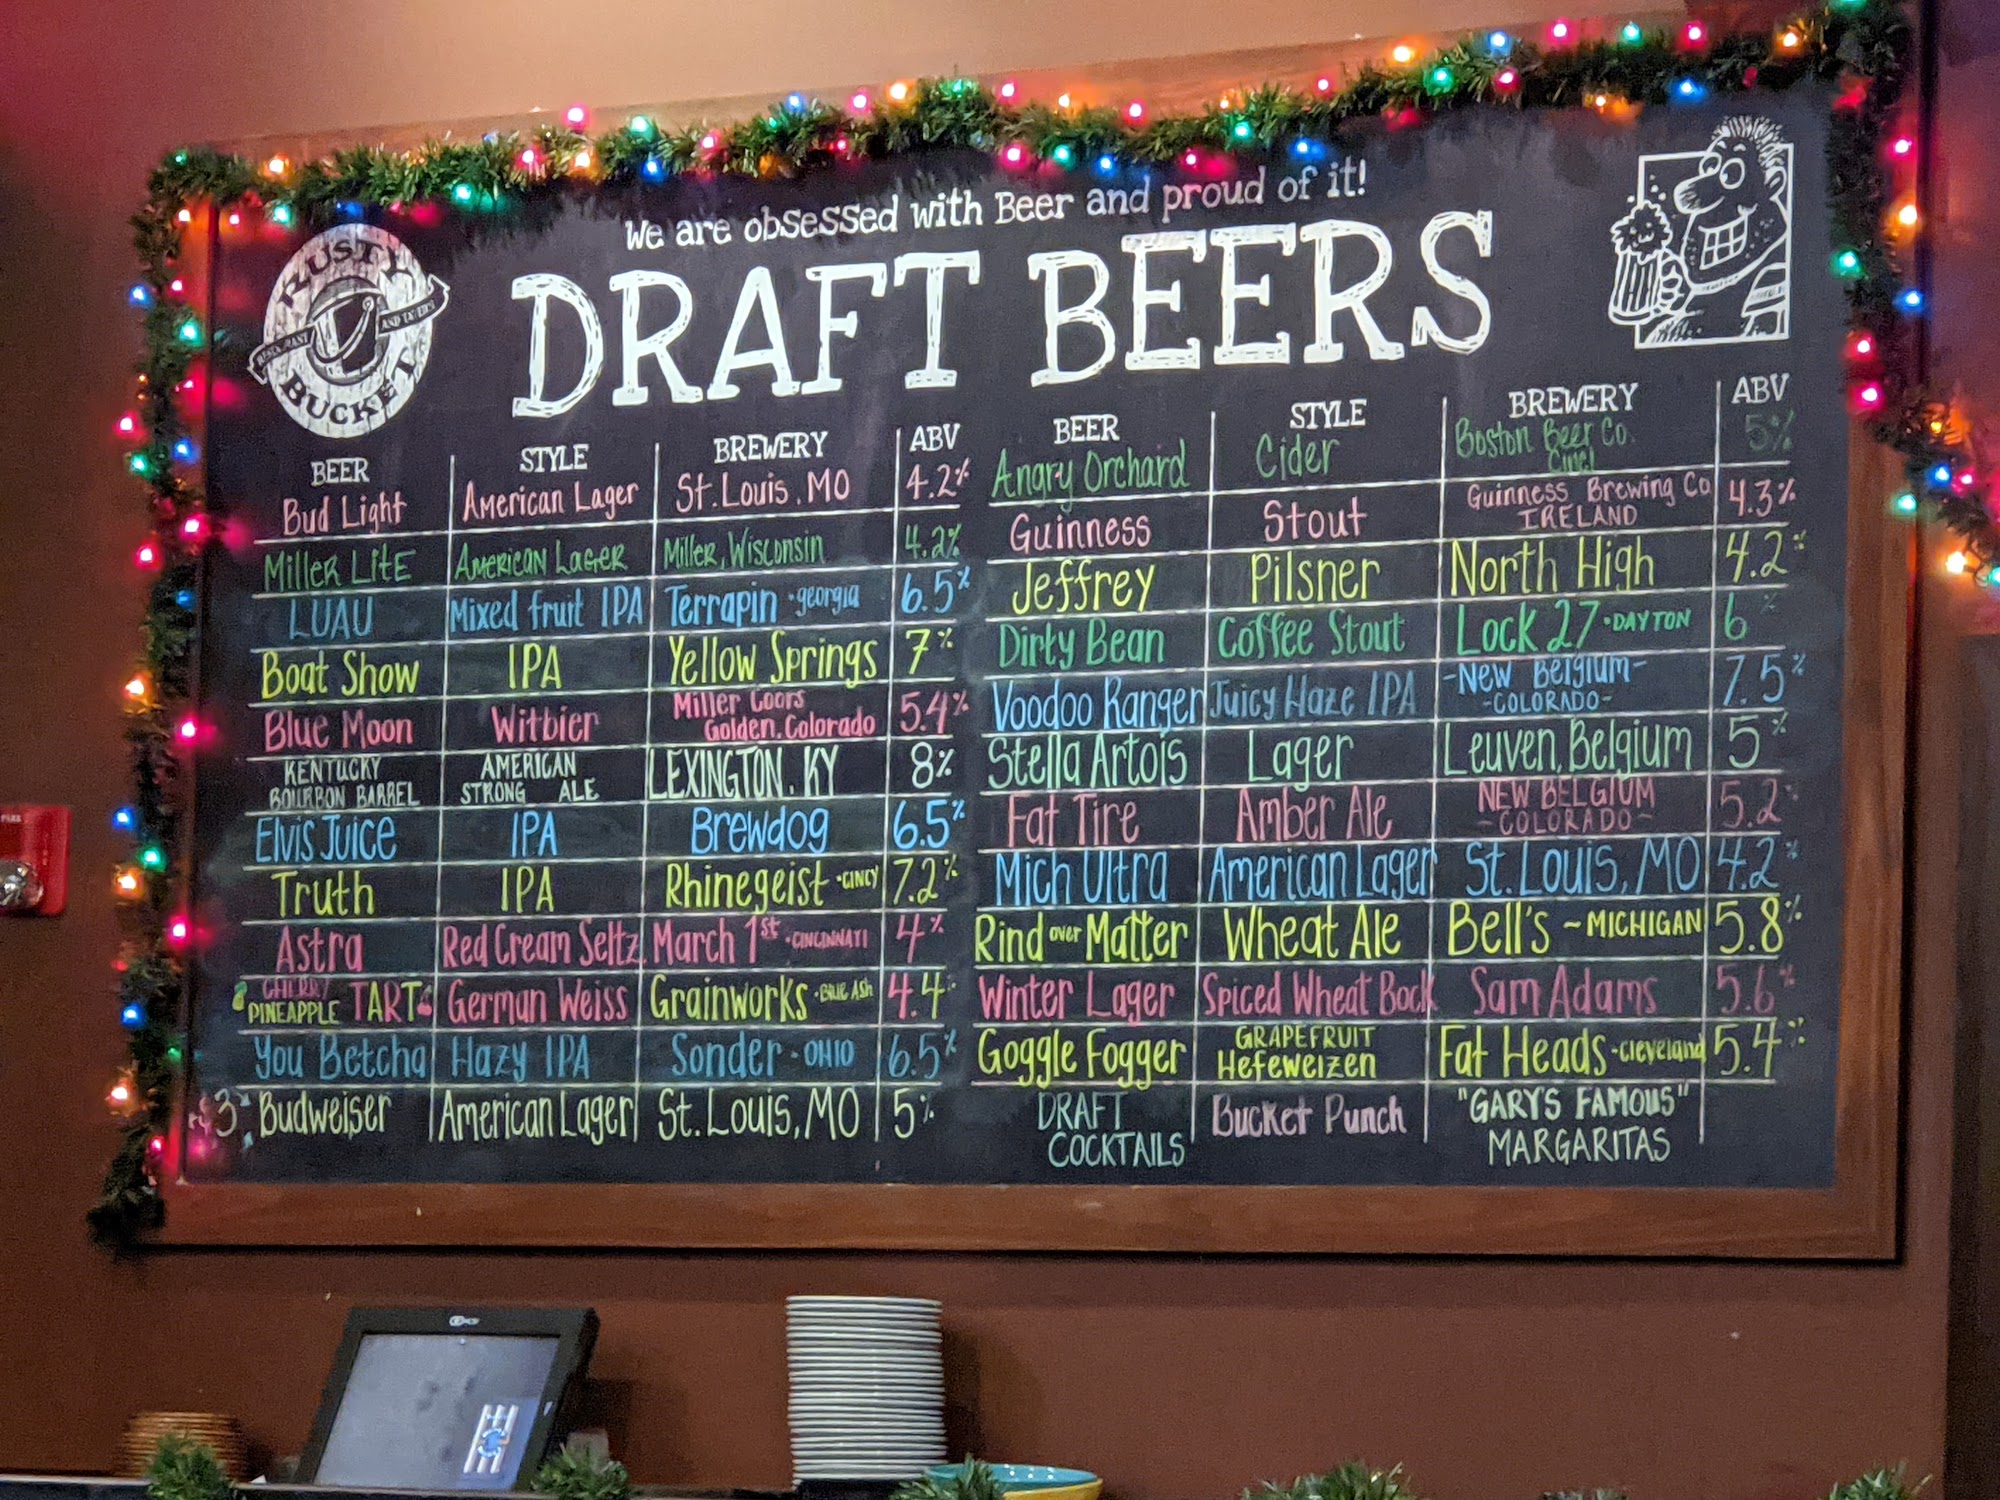 We are obsessed with Beer and proud of it!
DRAFT BEERS
RUSTY
RESTAURANT AND TAVERN
BUCKET
BEER STYLE BREWERY ABV
Bud Light American Lager St. Louis, MO 4.2%
Miller Lite American Lager Miller, Wisconsin 4.2%
LUAU Mixed fruit IPA Terrapin · georgia 6.5%
Boat Show IPA Yellow Springs 7%
Blue Moon Witbier Miller Coors Golden, Colorado 5.4%
KENTUCKY BOURBON BARREL AMERICAN STRONG ALE LEXINGTON, KY 8%
Elvis Juice IPA Brewdog 6.5%
Truth IPA Rhinegeist · CINCY 7.2%
Astra Red Cream Seltz March 1st · CINCINNATI 4%
CHERRY PINEAPPLE TART German Weiss Grainworks · Blue Ash 4.4%
You Betcha Hazy IPA Sonder · OHIO 6.5%
$3 Budweiser American Lager St. Louis, MO 5%
BEER STYLE BREWERY ABV
Angry Orchard Cider Boston Beer Co. Cinci 5%
Guinness Stout Guinness Brewing Co IRELAND 4.3%
Jeffrey Pilsner North High 4.2%
Dirty Bean Coffee Stout Lock 27 · DAYTON 6%
Voodoo Ranger Juicy Haze IPA -New Belgium- -COLORADO- 7.5%
Stella Artois Lager Leuven, Belgium 5%
Fat Tire Amber Ale NEW BELGIUM -COLORADO- 5.2%
Mich Ultra American Lager St. Louis, MO 4.2%
Rind over Matter Wheat Ale Bell's ~ MICHIGAN 5.8%
Winter Lager Spiced Wheat Bock Sam Adams 5.6%
Goggle Fogger GRAPEFRUIT Hefeweizen Fat Heads · Cleveland 5.4%
DRAFT COCKTAILS Bucket Punch "GARY'S FAMOUS" MARGARITAS